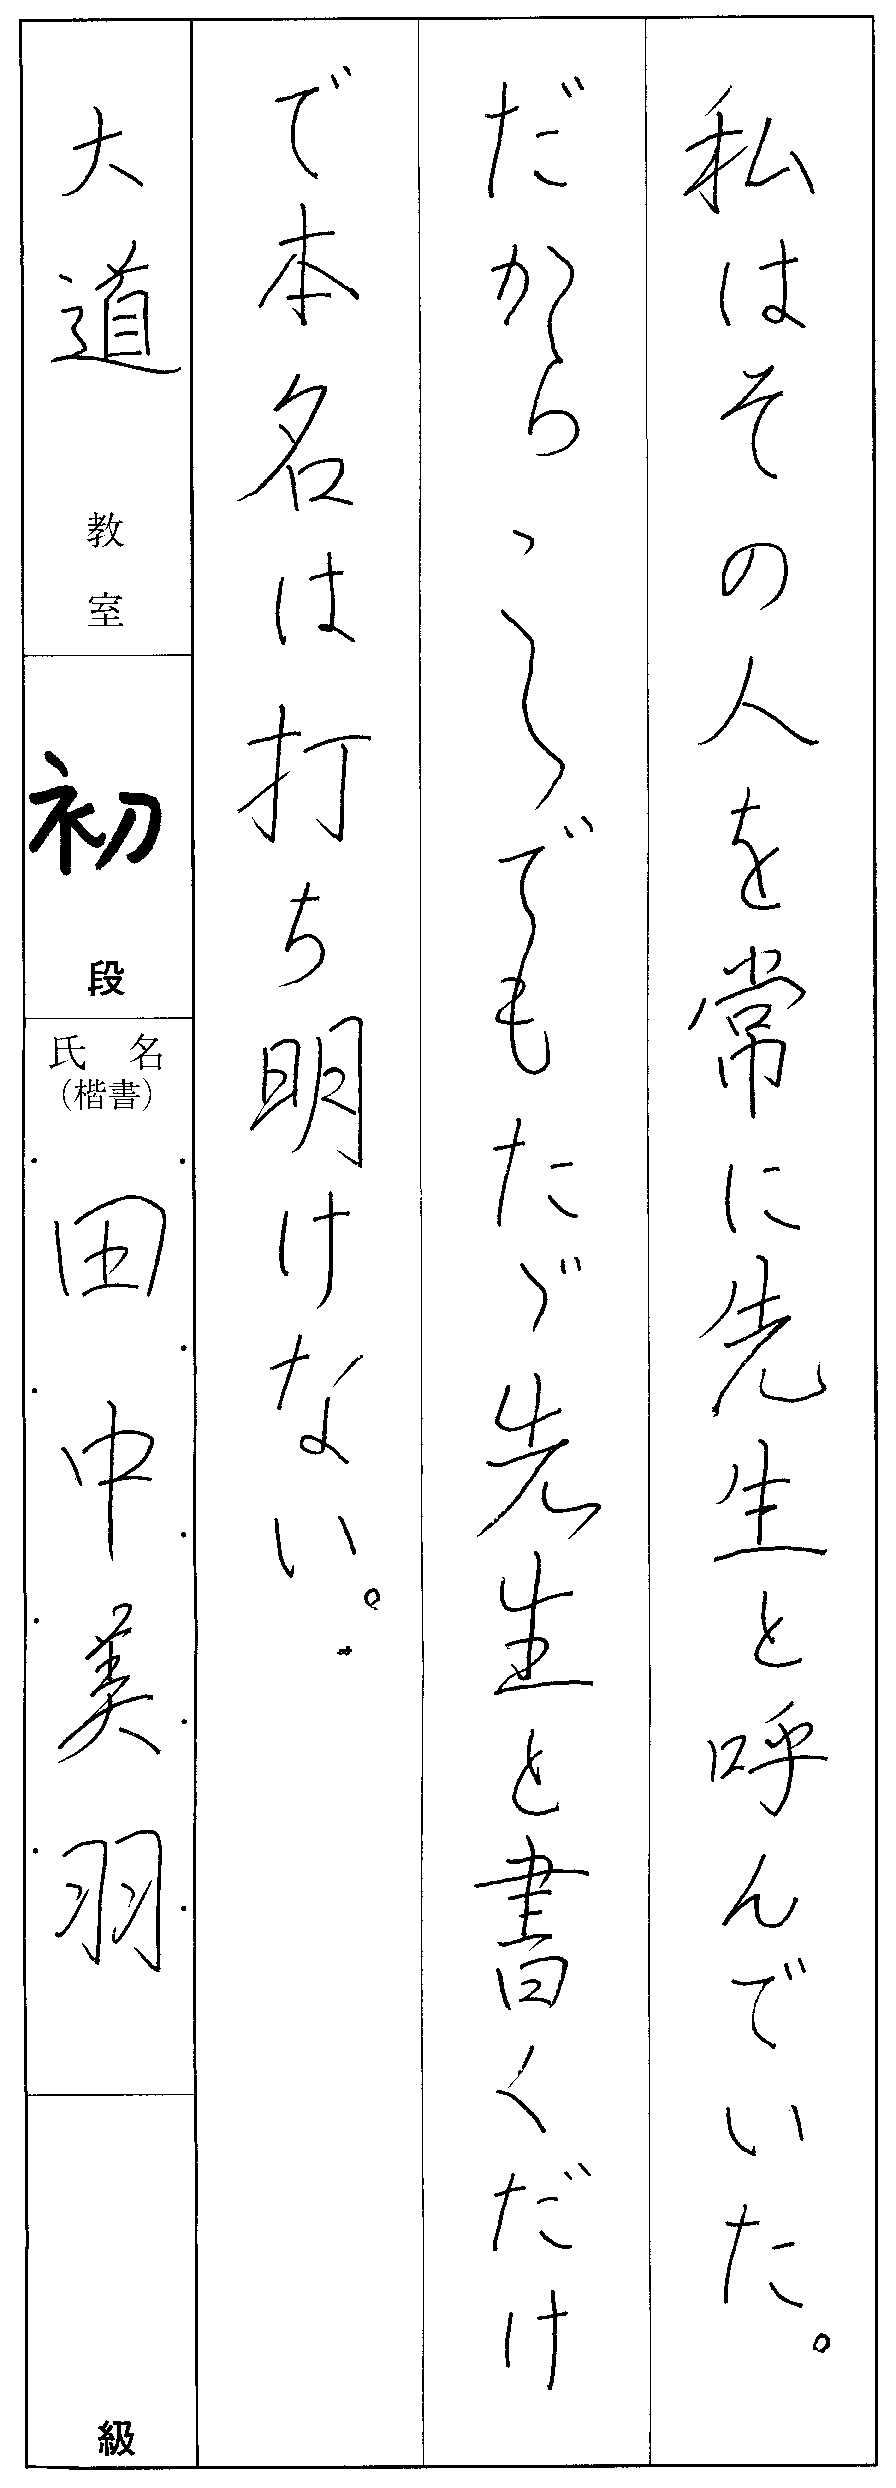 私はその人を常に先生と呼んでいた。
だからこゝでもたゞ先生と書くだけ
で本名は打ち明けない。
大道教室
初段
氏名
(楷書)
田中美羽
級